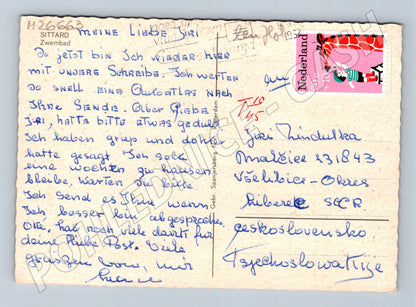 H26663
SITTARD
Zwembad
MEINE LIEBE JIRI
So jetzt bin Ich wieder hier
mit unsere Schreibe. Ich werten
so snell eine Autoatlas nach
Ihre Sende. Aber Giebe
JIRI, hatte bitte etwas geduld
Ich haben griep und dokter
hatte gesagt Ich soll
eine wochen zu hausen
bleibe, warten zu bitte
Ich send es Ihne wenn
Ich besser bin abgesprochen
Oke. hat noch viel dank für
deine Hube Post. Viele
Grussen von, mir
Gebr. Spanjersberg
Nederland
T 10
45
Jiri Lindulka
Malčice 231843
Všelibice - Okres
Liberec SSCR
Československo.
Tsjechoslowakije
POHLEDNICE-CASH